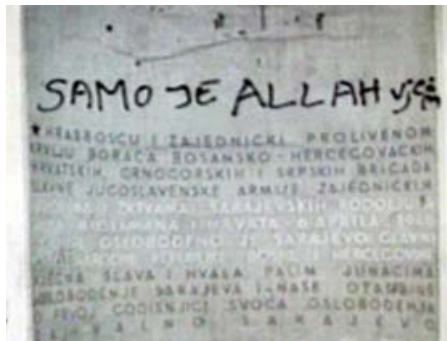 SAMO JE ALLAH
HRABROŠĆU I ZAJEDNIČKI PROLIVENOM
KRVLJU BORACA BOSANSKO-HERCEGOVAČKIH
HRVATSKIH, CRNOGORSKIH I SRPSKIH BRIGADA
SLAVNE JUGOSLAVENSKE ARMIJE ZAJEDNIČKIM
SARAJEVSKIH RODOLJUBA
6 APRILA
OSLOBOĐENO JE SARAJEVO GLAVNI
NARODNE REPUBLIKE BOSNE I HERCEGOVINE
VJEČNA SLAVA I HVALA PALIM JUNACIMA
OSLOBOĐENJE SARAJEVA I NAŠE OTADŽBINE
PRVOJ GODIŠNJICI SVOGA OSLOBOĐENJA
ZAHVALNO SARAJEVO